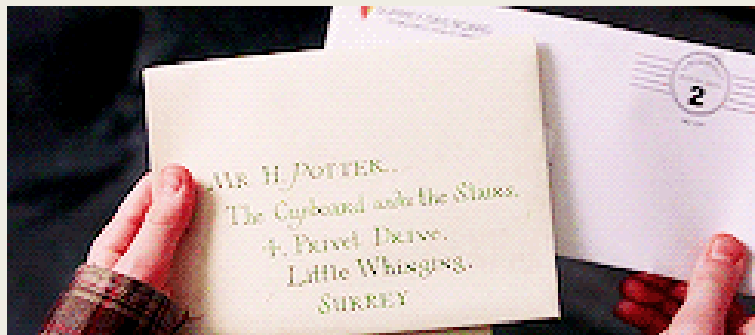 MR H. POTTER,
The Cupboard under the Stairs,
4, PRIVET DRIVE,
Little Whinging,
SURREY
2